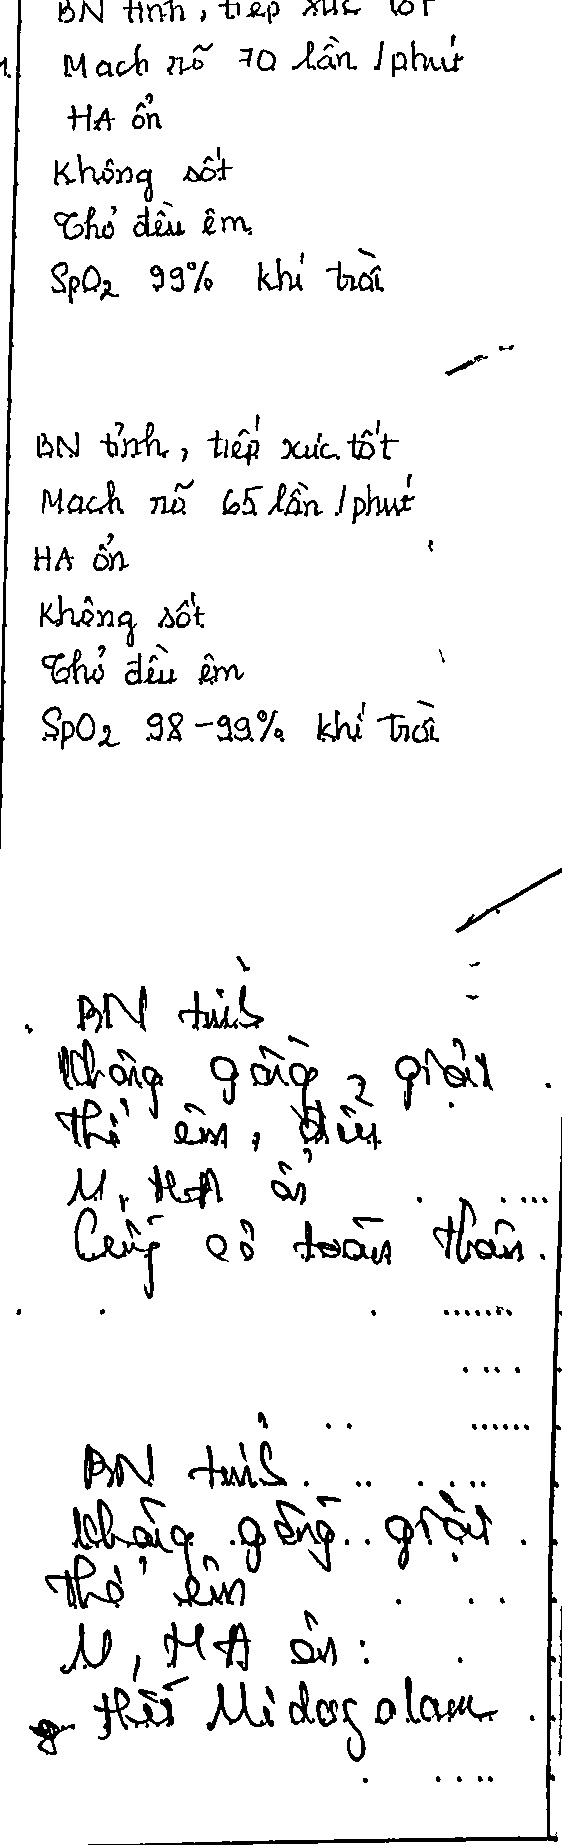 BN tỉnh, tiếp xúc tốt
Mạch rõ 70 lần/phút
HA ổn
Không sốt
Thở đều êm.
SpO2 99% khí trời
BN tỉnh, tiếp xúc tốt
Mạch rõ 65 lần/phút
HA ổn
Không sốt
Thở đều êm
SpO2 98-99% khí trời
BN tỉnh
Không gồng, giật
Thở êm, đều
M, HA ổn
Cứng cơ toàn thân.
BN tỉnh
Không gồng giật
Thở êm
M, HA ổn:
Midazolam